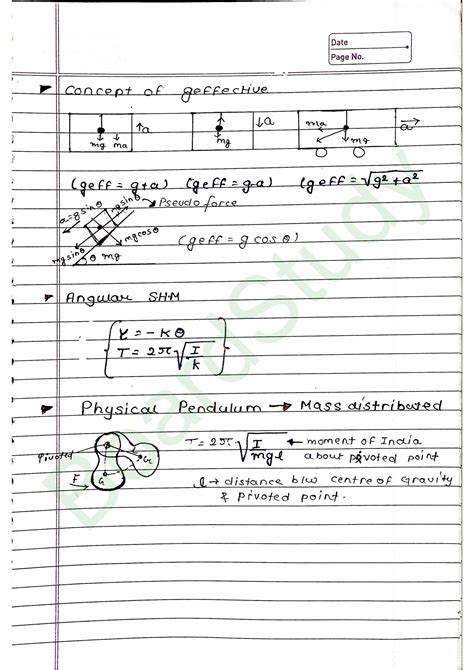 Date
Page No.
Concept of geffective
↑a
mg ma
↓a
mg
ma
mg
a
(geff = g+a) (geff = g-a) (geff = √g²+a²
a=gsinθ
mgsinθ
Pseudo force
mgcosθ
mgsinθ
θ mg
(geff = g cos θ)
Angular SHM
τ = -kθ
T = 2π√I/k
Physical Pendulum → Mass distributed
Pivoted
G
F
T = 2π√I/mgl ← moment of India
about pivoted point
l → distance b/w centre of gravity
& pivoted point.
BoardStudy